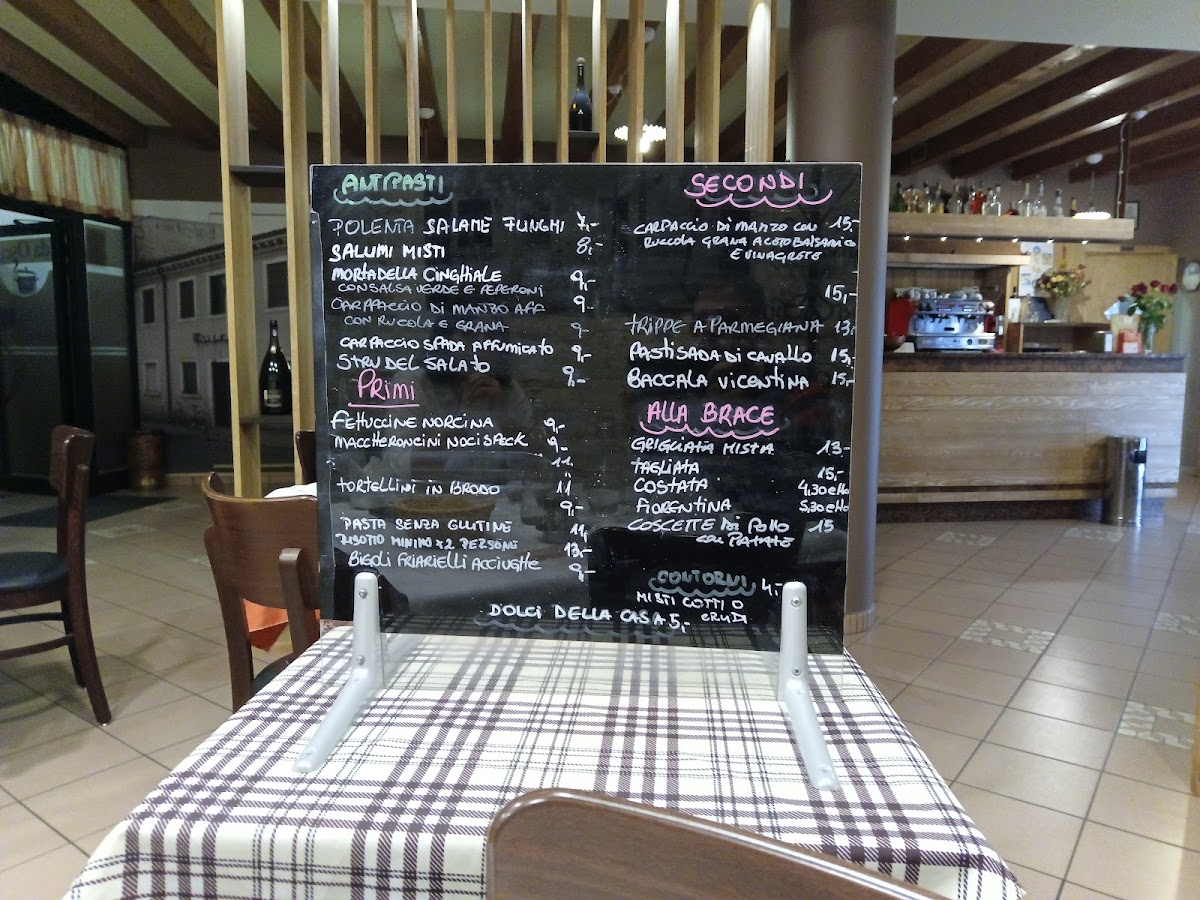 ANTIPASTI
POLENTA SALAME FUNGHI 7,-
SALUMI MISTI 8,-
MORTADELLA CINGHIALE 9,-
CON SALSA VERDE E PEPERONI
CARPACCIO DI MANZO AFF 9-
CON RUCOLA E GRANA 9-
CARPACCIO SPADA AFFUMICATO 9,-
STRUDEL SALATO 9,-
PRIMI
FETTUCCINE NORCINA 9,-
MACCHERONCINI NOCI SPECK 9,-
11,
TORTELLINI IN BRODO 11
9,-
PASTA SENZA GLUTINE 11,
RISOTTO MINIMO X2 PERSONE 13,-
BIGOLI FRIARIELLI ACCIUGHE 9,-
SECONDI
CARPACCIO DI MANZO CON 15,-
RUCOLA GRANA ACETO BALSAMICO
E VINAGRETE
15,-
TRIPPE A PARMEGIANA 13,
PASTISADA DI CAVALLO 15,-
BACCALA VICENTINA 15,-
ALLA BRACE
GRIGLIATA MISTA 13-
TAGLIATA 15,-
COSTATA 4,30 etto
FIORENTINA 5,30 etto
COSCETTE DI POLLO 15
CON PATATE
CONTORNI 4,-
MISTI COTTI O
CRUDI
DOLCI DELLA CASA 5,-